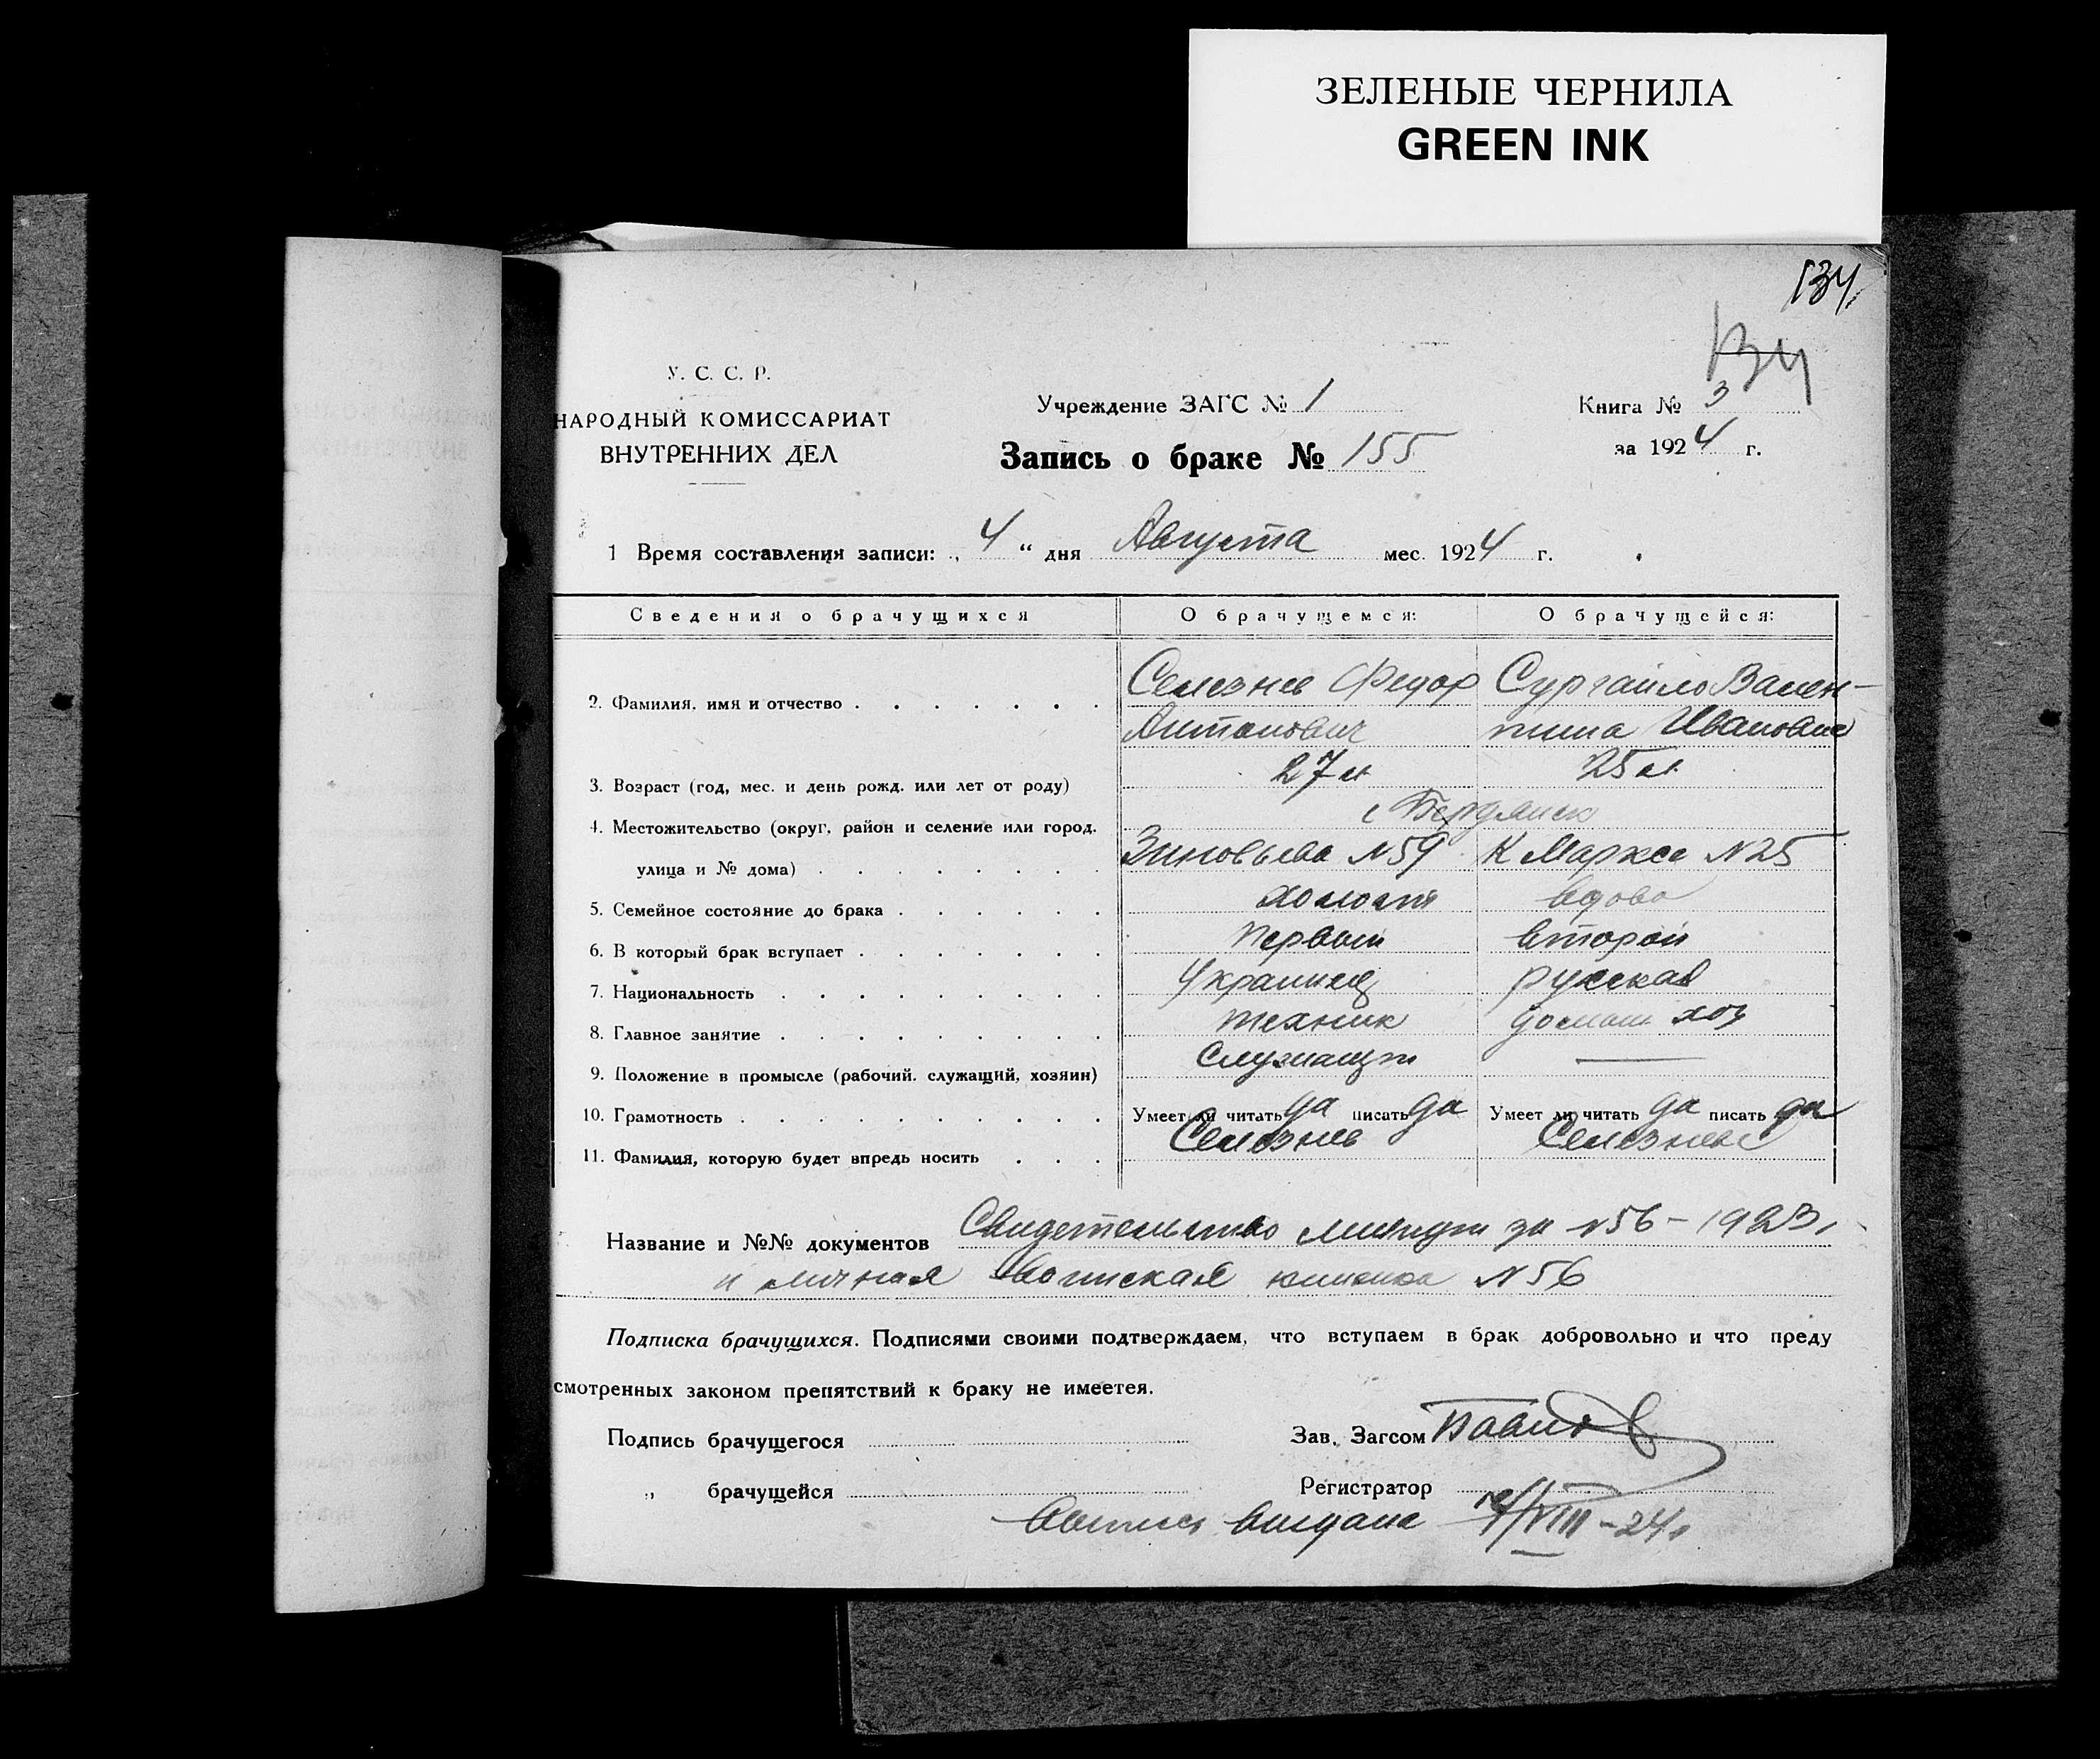 ЗЕЛЕНЫЕ ЧЕРНИЛА
GREEN INK
134
134
У. С. С. Р.
НАРОДНЫЙ КОМИССАРИАТ
ВНУТРЕННИХ ДЕЛ
Учреждение ЗАГС № 1
Запись о браке № 155
Книга № 3
за 1924 г.
1 Время составления записи: „ 4 “ дня Августа мес. 1924 г.
Сведения о брачущихся О брачущемся: О брачущейся:
2. Фамилия, имя и отчество Селезнев Федор Сургайло Вален-
Антонович тина Ивановна
3. Возраст (год, мес. и день рожд. или лет от роду) 27 л. 25 л.
4. Местожительство (округ, район и селение или город, г Бердянск
улица и № дома) Зиновьева №59 К Маркса №25
5. Семейное состояние до брака холост вдова
6. В который брак вступает первый второй
7. Национальность Украинец русская
8. Главное занятие техник домаш хоз
9. Положение в промысле (рабочий, служащий, хозяин) служащий —
10. Грамотность Умеет ли читать да писать да Умеет ли читать да писать да
11. Фамилия, которую будет впредь носить Селезнев Селезнева
Название и №№ документов Свидетельство за №56-1923
и личная воинская книжка №56
Подписка брачущихся. Подписями своими подтверждаем, что вступаем в брак добровольно и что преду
смотренных законом препятствий к браку не имеетея.
Подпись брачущегося Зав. Загсом
„ брачущейся Регистратор
выдана /VIII-24